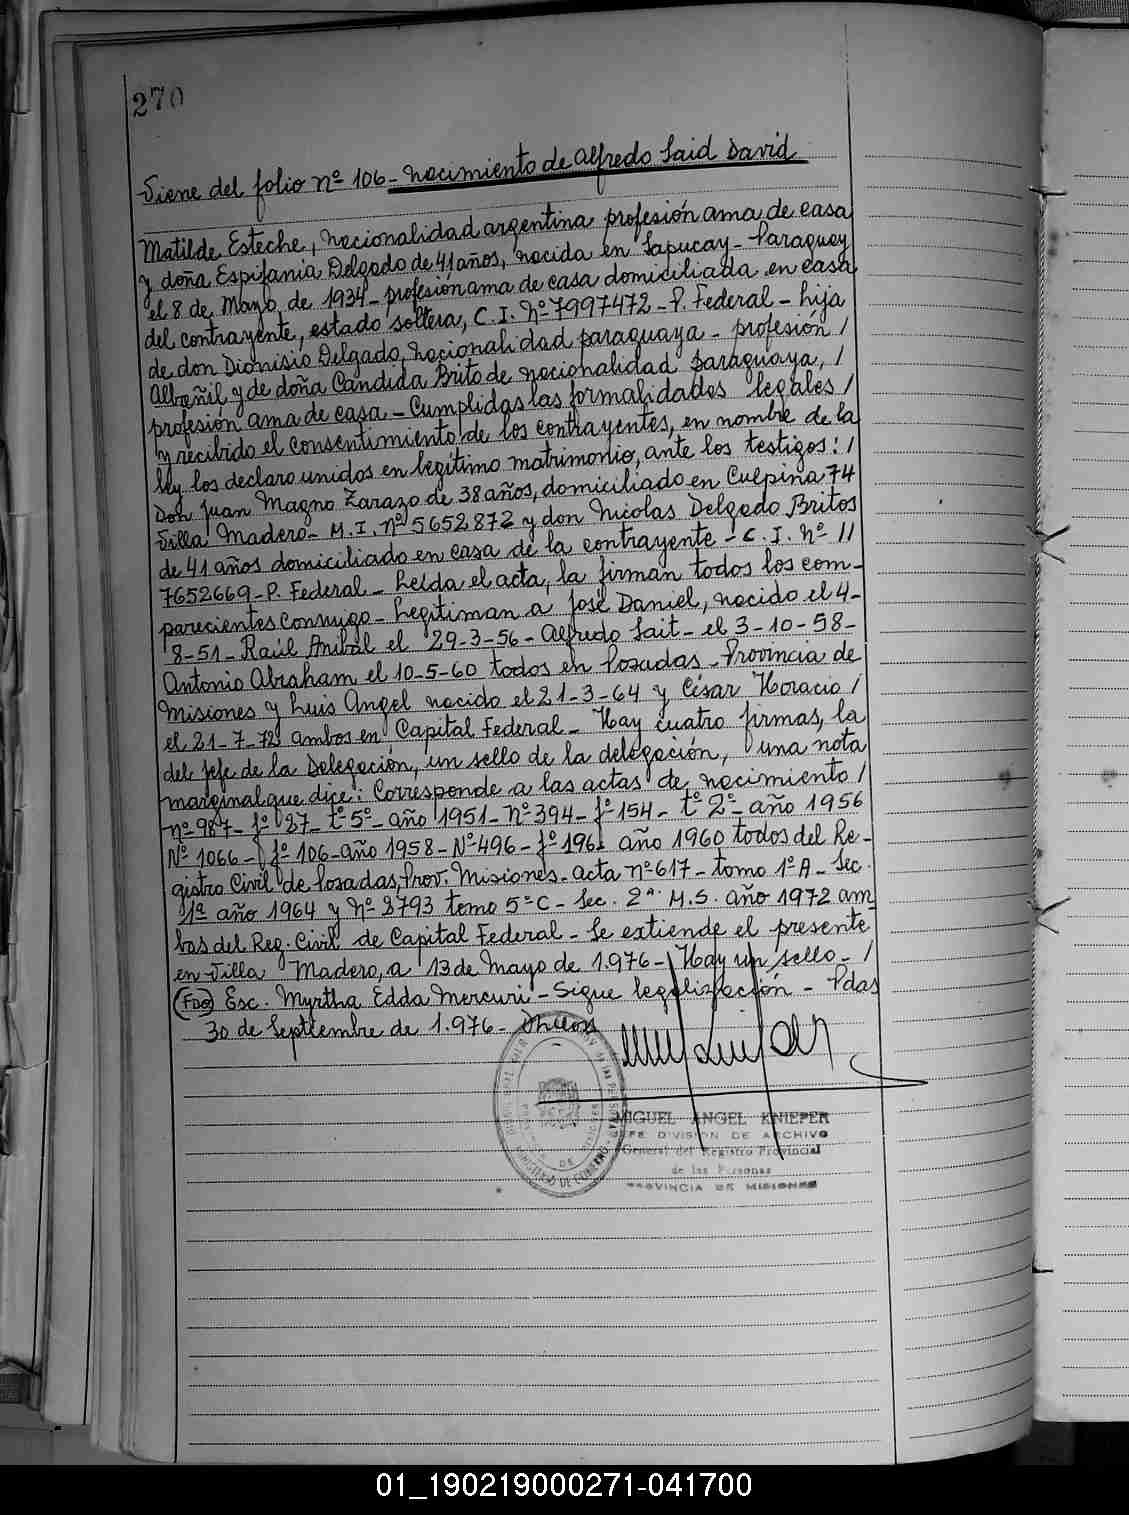 270
Viene del folio nº 106 - nacimiento de Alfredo Said David
Matilde Esteche, nacionalidad argentina profesión ama de casa
y doña Espifania Delgado de 41 años, nacida en Sapucay - Paraguay
el 8 de Mayo de 1934 - profesión ama de casa domiciliada en casa
del contrayente, estado soltera, C. I. Nº 7997472 - P. Federal - hija
de don Dionisio Delgado, nacionalidad paraguaya - profesión /
Albañil y de doña Candida Brito de nacionalidad paraguaya, /
profesión ama de casa - Cumplidas las formalidades legales /
y recibido el consentimiento de los contrayentes, en nombre de la
ley los declaro unidos en legítimo matrimonio, ante los testigos: /
Don Juan Magno Zarazo de 38 años, domiciliado en Culpina 74
Villa Madero - M. I. nº 5652872 y don Nicolas Delgado Britos
de 41 años domiciliado en casa de la contrayente - C. I. Nº //
7652669 - P. Federal - Leída el acta, la firman todos los com-
parecientes conmigo - Legitiman a José Daniel, nacido el 4-
8-51 - Raúl Anibal el 29-3-56 - Alfredo Sait - el 3-10-58 -
Antonio Abraham el 10-5-60 todos en Posadas - Provincia de
Misiones y Luis Angel nacido el 21-3-64 y César Horacio /
el 21-7-72 ambos en Capital Federal - Hay cuatro firmas, la
del jefe de la Delegación, un sello de la delegación, una nota
marginal que dice: Corresponde a las actas de nacimiento /
nº 987 - fº 87 - tº 5º - año 1951 - Nº 394 - fº 154 - tº 2º - año 1956
Nº 1066 - fº 106 - año 1958 - Nº 496 - fº 196 año 1960 todos del Re-
gistro Civil de Posadas, Prov. Misiones - acta nº 617 - tomo 1º A - Sec.
1ª año 1964 y Nº 2793 tomo 5º C - Sec. 2ª M.S. año 1972 am_
bos del Reg. Civil de Capital Federal - Se extiende el presente
en Villa Madero, a 13 de Mayo de 1.976 - Hay un sello - /
(FDO) Esc. Myrtha Edda Mercuri - Sigue legalización - Pdas
30 de Septiembre de 1.976 -
MIGUEL ANGEL KNIEPER
JEFE DIVISION DE ARCHIVO
General del Registro Provincial
de las Personas
PROVINCIA DE MISIONES
01_190219000271-041700